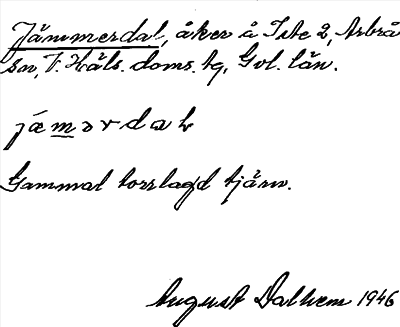 Jämmerdal, åker å Iste 2, Arbrå
sn, V. Häls. doms. tg, Gvl. län.
jæmərdaL
Gammal torrlagd tjärn.
August Dalhem 1946